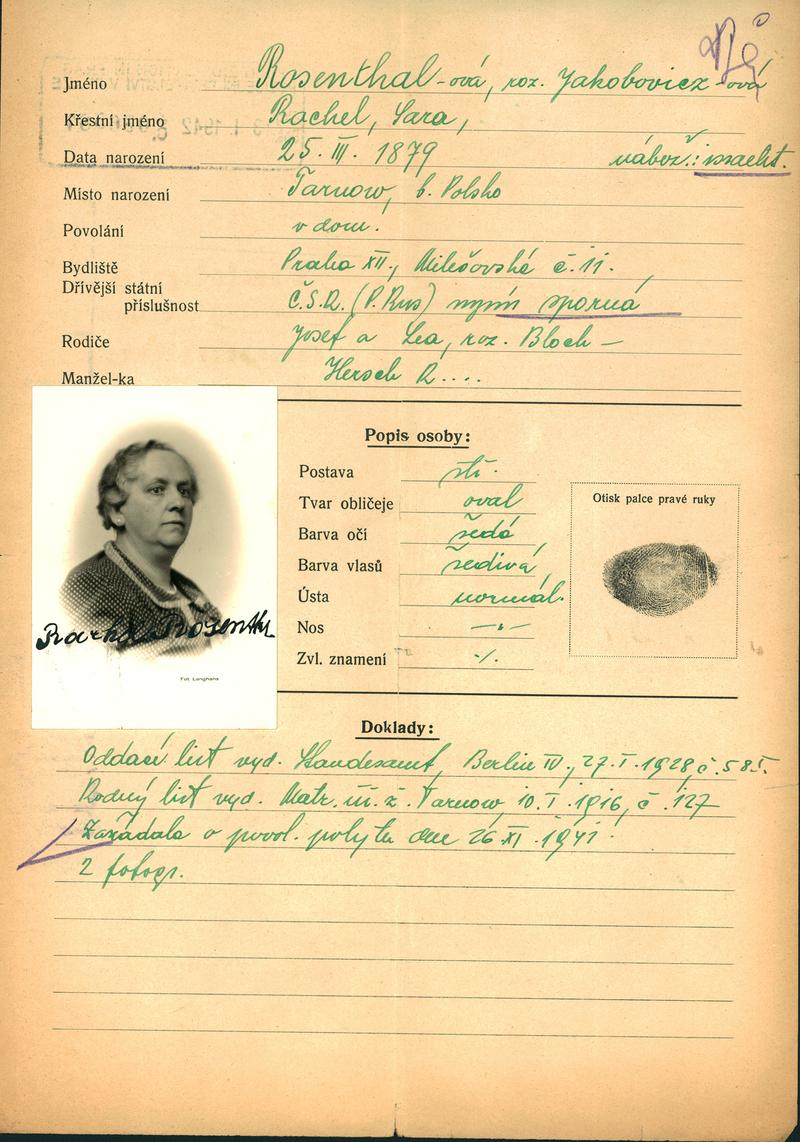 Jméno Rosenthal-ová, roz. Jakobovicz-ová
Křestní jméno Rachel, Sara,
Data narození 25. III. 1879 nábož.: israelit.
Místo narození Tarnow, b. Polsko
Povolání v dom.
Bydliště Praha XII., Milešovská č. 11.
Dřívější státní
příslušnost Č.S.R. (P. Rus) nyní sporná
Rodiče Josef a Lea, roz. Bloch —
Manžel-ka Hersch R....
Popis osoby:
Postava stř.
Tvar obličeje oval
Barva očí šedá
Barva vlasů šedivá
Ústa normál.
Nos —"—
Zvl. znamení ./.
Otisk palce pravé ruky
Rachel Rosenthal
Fot. Langhans
Doklady:
Oddací list vyd. Standesamt, Berlin IV., 27. I. 1928, č. 585.
Rodný list vyd. Matr. ú. ž. Tarnow, 10. I. 1916, č. 127
Zažádala o povol. pobytu dne 26. XI. 1941.
2 fotogr.